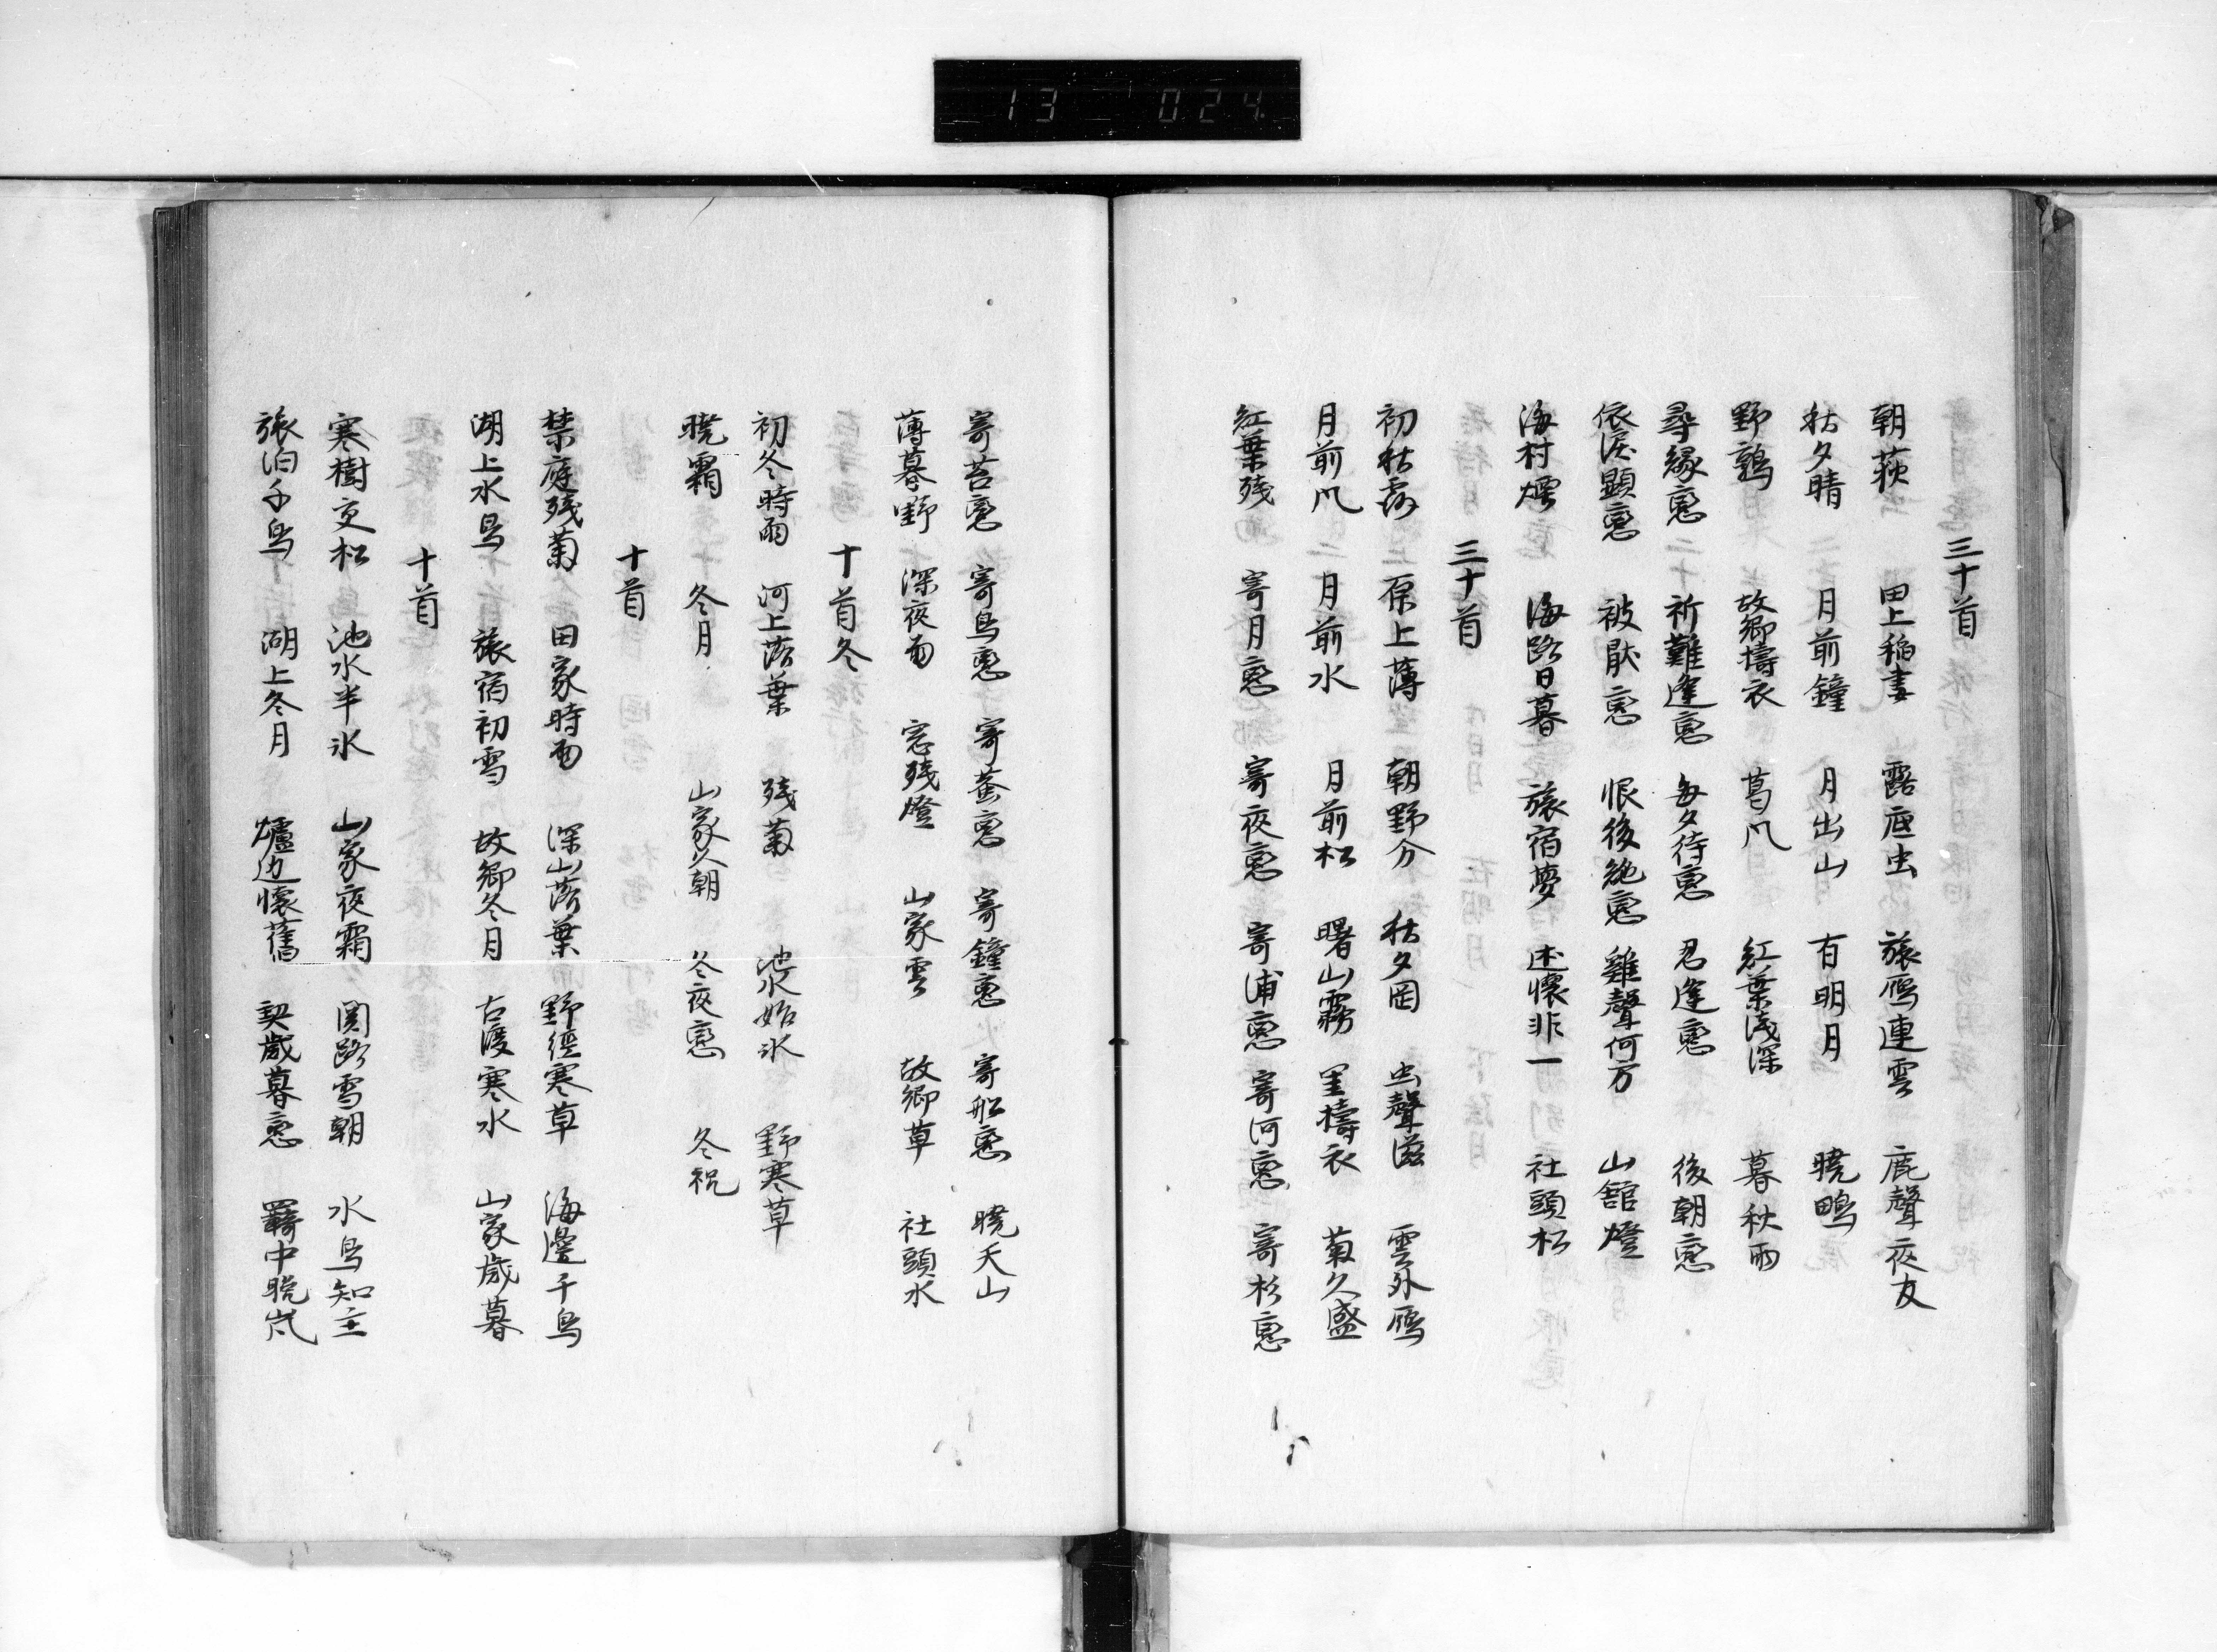 13 024
三十首
朝荻 田上稲妻 露底虫 旅鴈連雲 鹿聲夜友
秋夕晴 月前鐘 月出山 有明月 暁鴫
野鶉 故郷擣衣 葛風 紅葉浅深 暮秋雨
尋縁恋 祈難逢恋 毎夕待恋 忍逢恋 後朝恋
依涙顕恋 被厭恋 恨後絶恋 雞聲何方 山舘燈
海村煙 海路日暮 旅宿夢 述懐非一 社頭松
三十首
初秋露 原上薄 朝野分 秋夕岡 虫聲滋 雲外鴈
月前風 月前水 月前松 曙山霧 里擣衣 菊久盛
紅葉残 寄月恋 寄夜恋 寄浦恋 寄河恋 寄杉恋
寄苔恋 寄鳥恋 寄莚恋 寄鐘恋 寄舩恋 暁天山
薄暮野 深夜雨 窓残燈 山家雲 故郷草 社頭水
十首冬
初冬時雨 河上落葉 残菊 池水始氷 野寒草
暁霜 冬月 山家冬朝 冬夜恋 冬祝
十首
禁庭残菊 田家時雨 深山落葉 野径寒草 海邊千鳥
湖上水鳥 旅宿初雪 故郷冬月 古渡寒水 山家歳暮
十首
寒樹交松 池水半氷 山家夜霜 関路雪朝 水鳥知主
旅泊千鳥 湖上冬月 爐边懐舊 契歳暮恋 羇中晩嵐